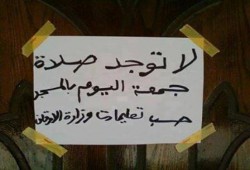 لا توجد صلاة
جمعة اليوم بالمسجد
حسب تعليمات وزارة الاوقاف